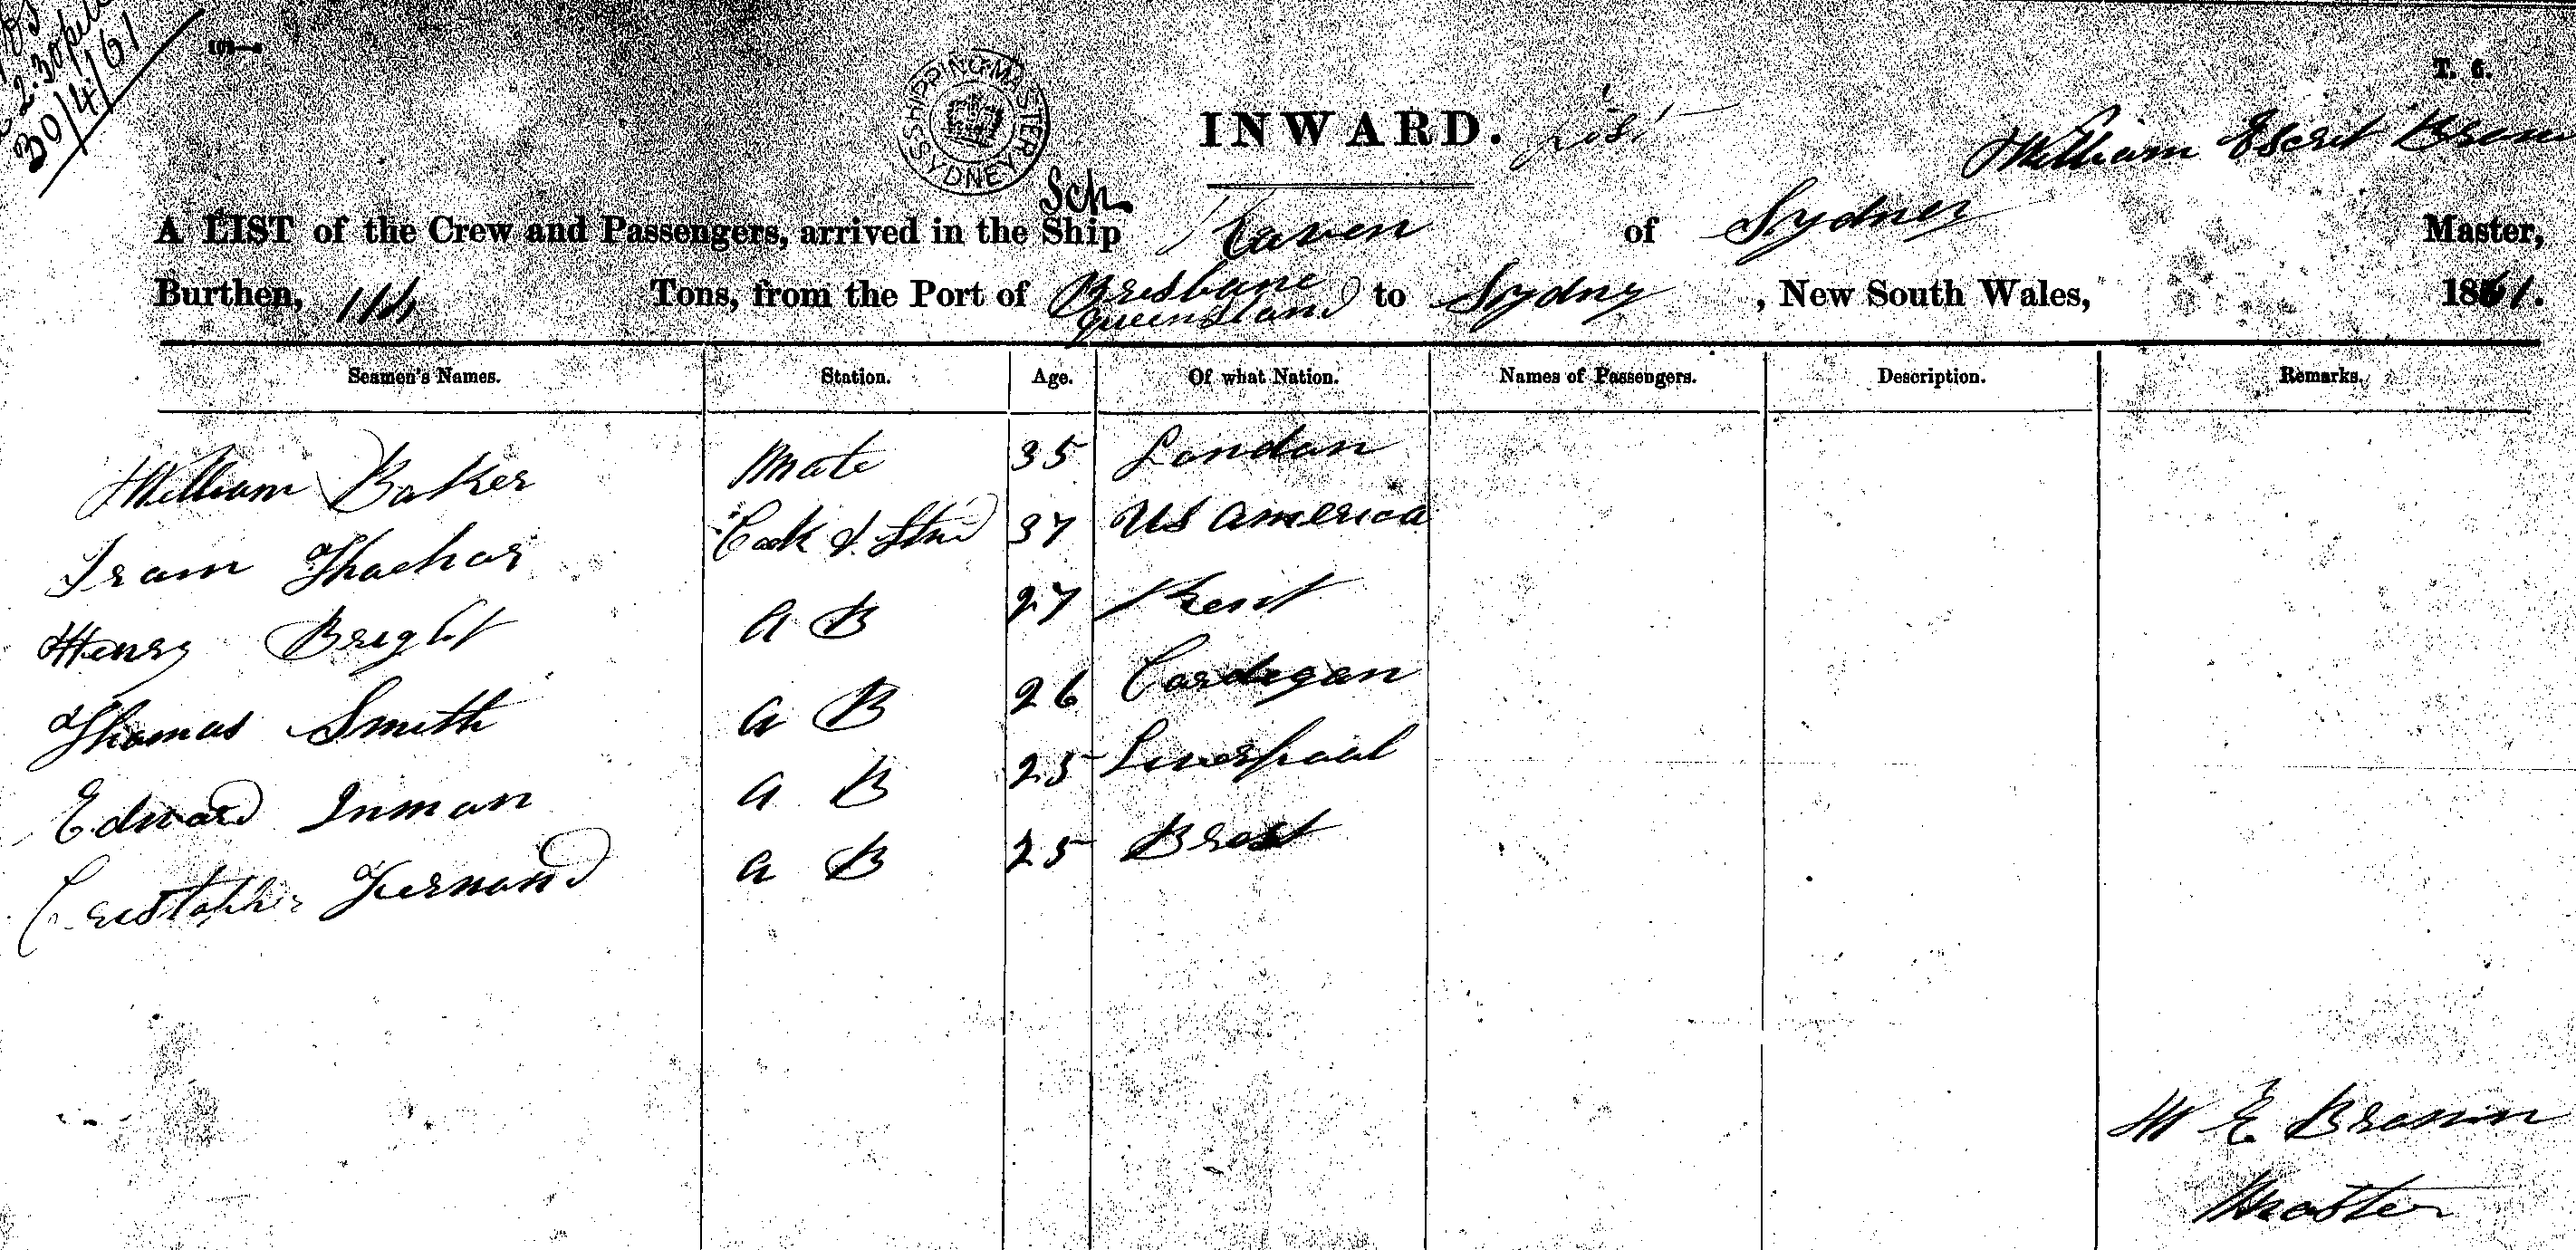 2.30 pm
30/4/61
T. 6.
SHIPPING MASTERS SYDNEY
INWARD.
William Escrit Brown
Sch
A LIST of the Crew and Passengers, arrived in the Ship Raven of Sydney Master,
Burthen, 114 Tons, from the Port of Brisbane Queensland to Sydny, New South Wales, 1861.
Seamen's Names. Station. Age. Of what Nation. Names of Passengers. Description. Remarks.
William Baker Mate 35 London
Thachar Cook & Stwd 37 US America
Henry Bright A B 27 Kent
Thomas Smith A B 26 Cardegan
Edward Inman A B 25 Liverpool
A B 25 Brest
W E Brown
Master